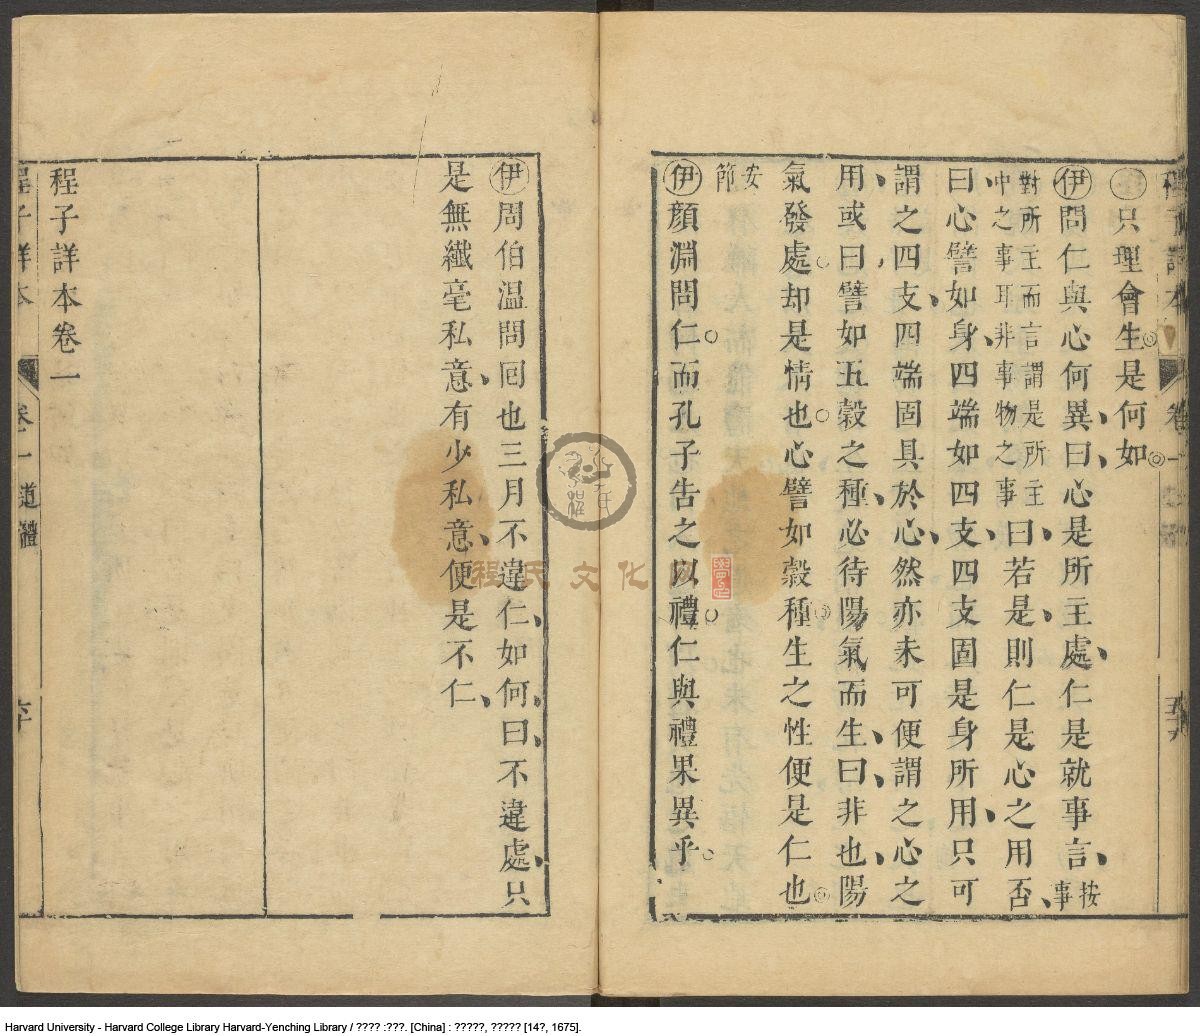 只理會生是何如
伊問仁與心何異曰心是所主處仁是就事言按事
對所主而言謂是所主
中之事耳非事物之事曰若是則仁是心之用否
曰心譬如身四端如四支四支固是身所用只可
謂之四支四端固具於心然亦未可便謂之心之
用或曰譬如五穀之種必待陽氣而生曰非也陽
氣發處却是情也心譬如穀種生之性便是仁也
安
節
伊顔淵問仁而孔子告之以禮仁與禮果異乎
伊周伯溫問回也三月不違仁如何曰不違處只
是無纖毫私意有少私意便是不仁
程子詳本卷一
程子詳本 卷一 道體
程氏文化
Harvard University - Harvard College Library Harvard-Yenching Library / ???? :???. [China] : ?????, ????? [14?, 1675].